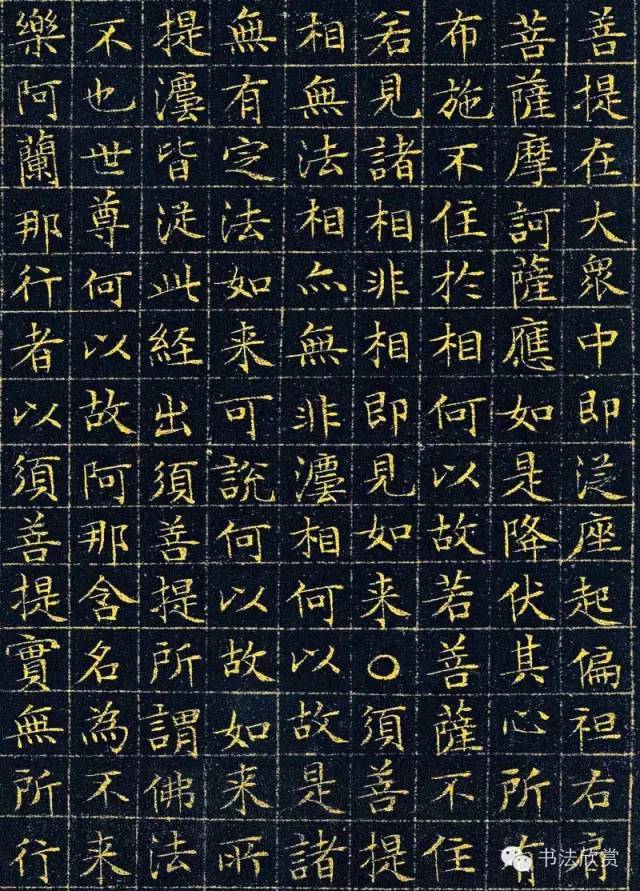 善提在大衆中即従座起偏袒右肩
菩薩摩訶薩應如是降伏其心所有
布施不住於相何以故若善薩不住
若見諸相非相即見如来○須善提
相無法相亦無非灋相何以故是諸
無有定法如来可說何以故如来所
提灋皆従此経出須善提所謂佛法
不也世尊何以故阿那含名為不来
樂阿蘭那行者以須善提實無所行
书法欣赏